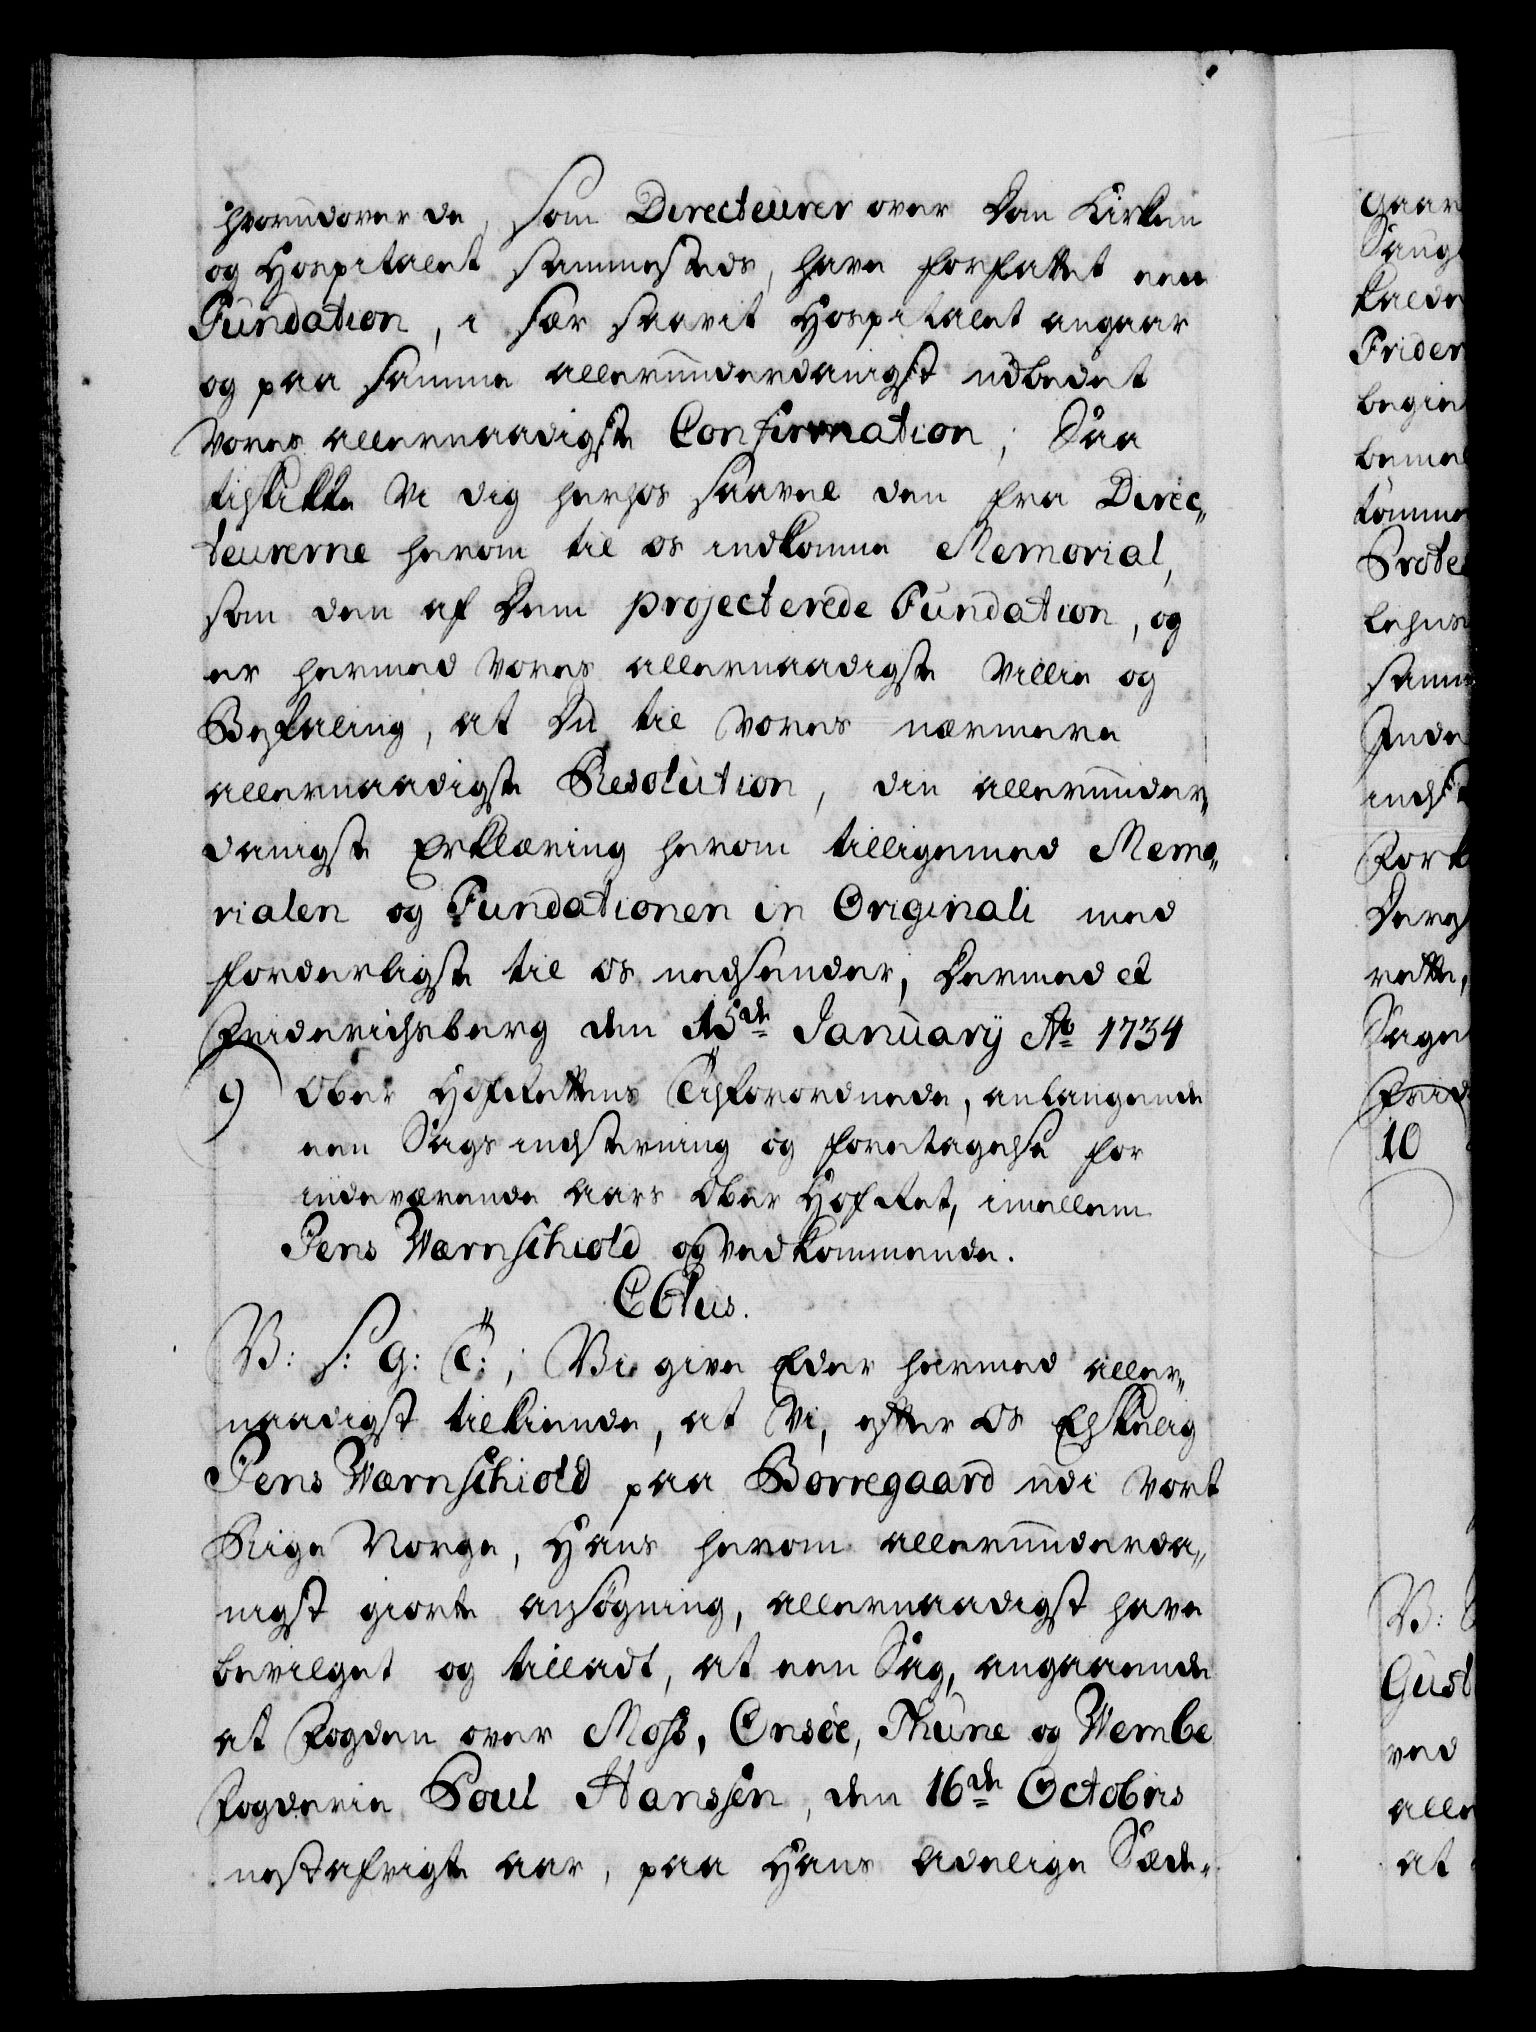 hvorudover de, som Directeurer over Dom Kirken
og Hospitalet sammesteds, have forfattet een
Fundation, i sær saavit Hospitalet angaar
og paa samme allerunderdanigst udbedet
Vores allernaadigste Confirmation; Saa
tilskikke Vi dig herhos saavel den fra Direc„
teurerne herom til os indkomne Memorial,
som den af Dem projecterede Fundation, og
er hermed Vores allernaadigste Villie og
Befaling, at Du til Vores nærmere
allernaadigste Resolution, din allerunder„
danigste Erklæring herom tilligemed Memo„
rialen og Fundationen in Originali med
forderligste til os nedsender, Dermed et
Friderichsberg den 15de January Ao 1734
9) Ober HofRettens Tilforordnede, anlangende
een Sags indstevning og foretagelse for
indeværende Aars Ober HofRet, imellem
Jens Wærnschiold og Vedkommende.
C6tus.
V: S: G: T:, Vi give Eder hermed aller„
naadigst tilkiende, at Vi, efter os Elskelig
Jens Wærnschiold paa Borregaard udi Vort
Rige Norge, Hans herom allerunderda„
nigst giorte ansøgning, allernaadigst have
bevilget og tilladt, at een Sag, angaaende
at Fogden over Moss, Onsøe, Thune og Wembe
Fogderie Poul Hanssen, den 16de Octobris
nestafvigte Aar, paa Hans adelige Sæde„
Gaar
Saug
kalde
Frider
begie
beme
tømme
Prote
Lehns
samm
Inde
indst
Fork
Derq
rette,
Sage
Frid
10
V:
Gust
ved
alle
at